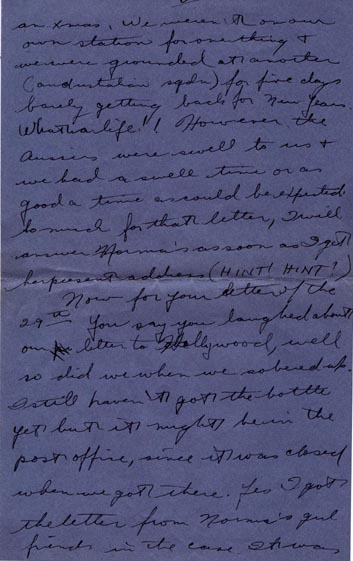 an xmas. We weren't on our
own station for one thing &
we were grounded at another
(Australian sqdn) for five days
barely getting back for New Years
What a life!! However the
Aussies were swell to us &
we had a swell time or as
good a time as could be expected.
So much for that letter, I will
answer Norma's as soon as I get
her present address (HINT! HINT!)
Now for your letter of the
29th You say you laughed about
our letter to Hollywood, well
so did we when we sobered up.
I still haven't got the bottle
yet but it might be in the
post office, since it was closed
when we got there. Yes I got
the letter from Norma's girl
friends in the case. It was